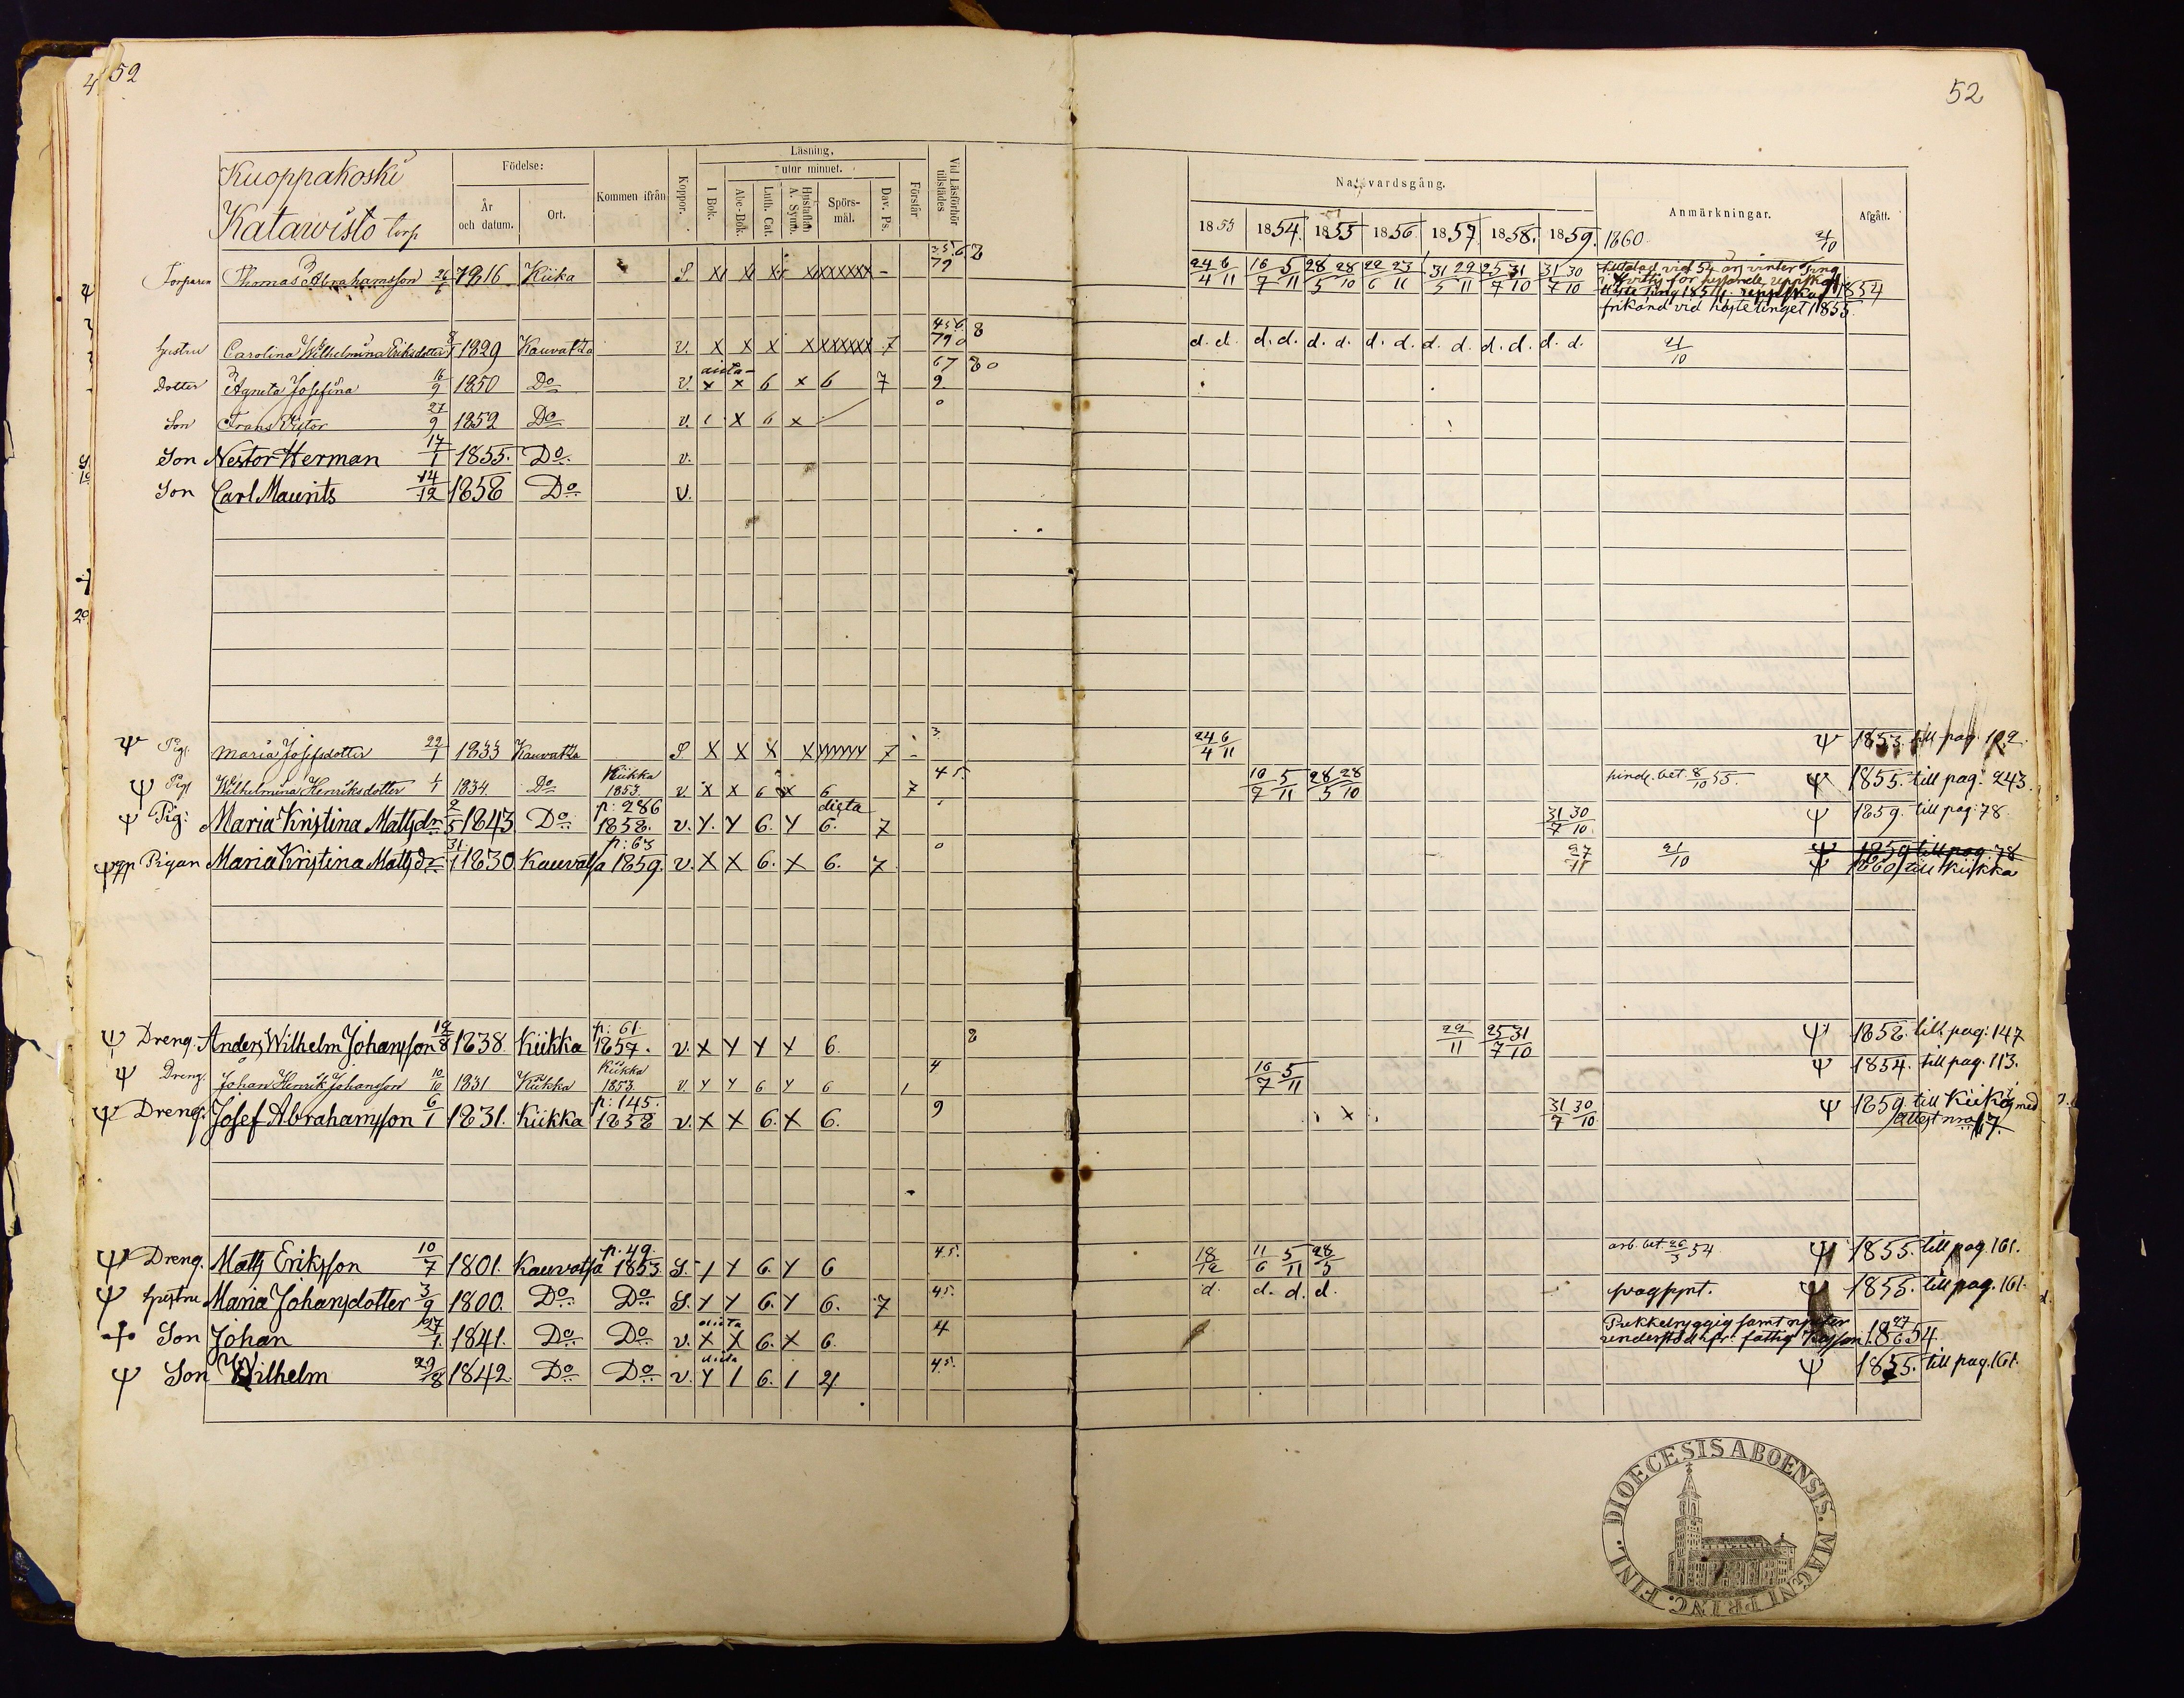 52
52
Kuoppakoski
Katawisto torp
Födelse:
År och datum.
Ort.
Kommen ifrån
Koppor.
Läsning,
utur minnet.
I Bok.
Abc-Bok.
Luth. Cat.
Hustaflan A. Symb.
Spörs-mål.
Dav. Ps.
Förstår
Vid Läsförhör tillstädes
Nattvardsgång.
1853 1854. 1855 1856 1857 1858. 1859. 1860
Anmärkningar.
Afgått.
Torparen Thomas Abrahamsson 1816 Kiika S. 24/4 6/11 16/7 5/11 28/5 28/10 22/6 23/11 31/5 29/11 25/7 31/10 31/7 30/10 21/10
frikänd vid höstetinget 1855.
hustru Carolina Wilhelmina Eriksdotter 1829 Kauvatsa v. x x x x xxxxxx 7 d. d. d. d. d. d. d. d. d. d. d. d. d. d. 21/10
Dotter Agneta Josefina 16/9 1850 Do v. x x 6 x 6 7
Son Frans Victor 27/9 1852 Do v. x 6 x
Son Nestor Herman 17/1 1855. Do. v.
Son Carl Maurits 14/12 1858 Do v.
Ψ Pig. Maria Josefsdotter 22/1 1833 Kauvatsa S x x x x 7 3 24/4 6/11 Ψ 1853. till pag. 192.
Ψ Pig. Wilhelmina Henriksdotter 1/1 1834. Do Kiikka 1853. v. x x 6 x 6 7 45. 16/7 5/11 28/5 28/10 hind. bet. 8/10 55. Ψ 1855. till pag. 243.
Ψ Pig: Maria Kristina Mattsdr 2/5 1843 Do p: 286 1858. v. 6. 6. dicta 7 31/7 30/10 Ψ 1859. till pag: 78.
Ψ Pigan Maria Kristina Mattsdr 31/1 1830. Kauvatsa p: 63 1859. v. x x 6. x 6. 7 27/11 21/10 Ψ 1859 till pag. 78
Ψ 1860 till Kiikka
Ψ Dreng. Anders Wilhelm Johansson 19/8 1838. Kiikka p: 61. 1857. v. 6. 8 29/11 25/7 31/10 Ψ 1858. till pag: 147
Ψ Dreng. Johan Henrik Johansson 10/10 1831 Kiikka Kiikka 1853. v. 6 6 4 16/7 5/11 Ψ 1854. till pag. 113.
Ψ Dreng. Josef Abrahamsson 6/1 1831. Kiikka p: 145. 1858 v. x x 6. x 6. 9 31/7 30/10 Ψ 1859 till Kiikois med
attest nro 17.
Ψ Dreng. Matts Eriksson 10/7 1801. Kauvatsa p. 49. 1853. S. 6. 6 45. 18/12 11/6 5/11 28/5 arb. bet. 26/3 54. Ψ 1855. till pag. 161.
Ψ hustru Maria Johansdotter 3/9 1800. Do Do S. 6. 6. 7 45. d. d. d. d. Ψ 1855. till pag. 161.
Son Johan 27/1. 1841. Do Do v. x x 6. x 6. 4 Pukkelryggig samt njuter
understöd fr: fattig kassan. 1854
Ψ Son Wilhelm 29/8 1842. Do Do v. 6. 45. Ψ 1855. till pag. 161.
DIOECESIS ABOENSIS. MAGNI PRINC. FINL.